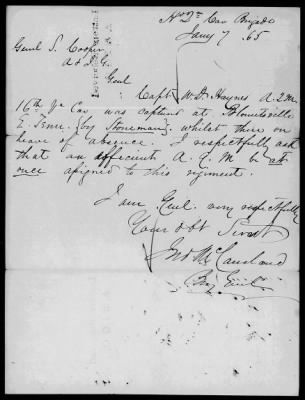 Hd Qrs Cav Brigade
Jany 7 .65
Genl S. Cooper
A & I. G.
Genl
Capt W. D. Haynes A. Q. M.
16th Va Cav was captured at Blountsville
E. Tenn. (by Stoneman), whilst there on
leave of absence. I respectfully ask
that an efficient A. Q. M be at
once assigned to this regiment.
I am Genl. very respectfully
Your obt Servt
Jno McCausland
Brig Genl